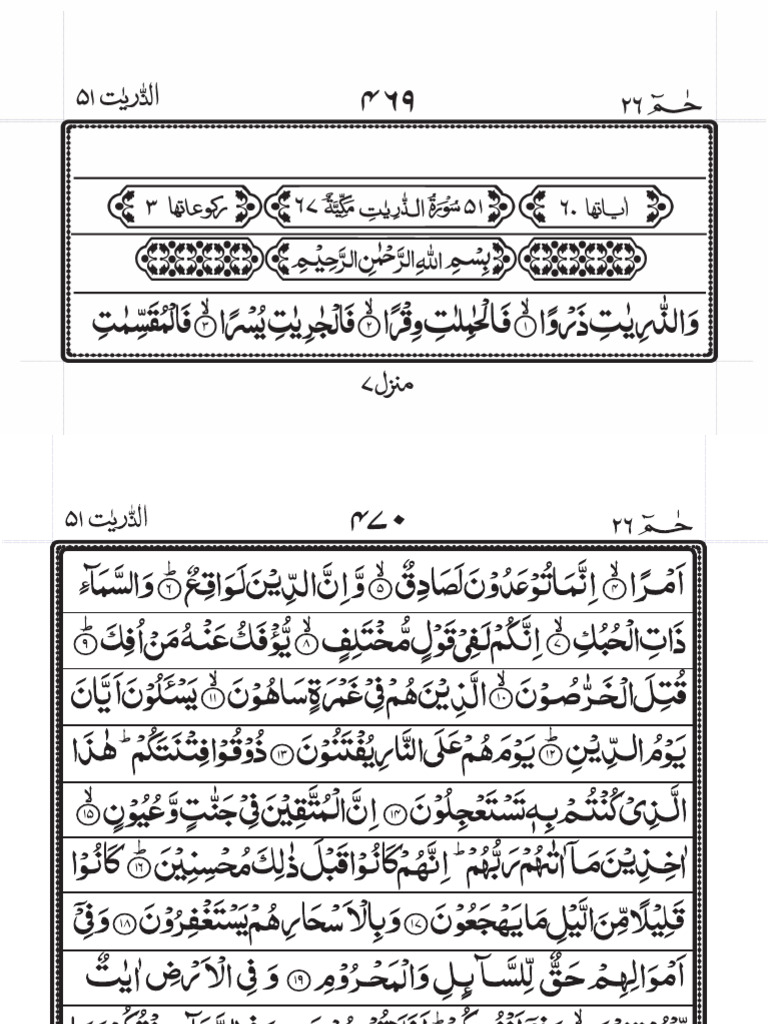 حٰمٓ ٢٦ ۴۶۹ الذّٰرِیٰت ۵۱
اٰیاتها ۶۰ ۵۱ سُوْرَةُ الذّٰرِیٰتِ مَکِّیَّةٌ ۶۷ رکوعاتها ۳
بِسْمِ اللّٰهِ الرَّحْمٰنِ الرَّحِیْمِ
وَالذّٰرِیٰتِ ذَرْوًا ۙ﴿۱﴾ فَالْحٰمِلٰتِ وِقْرًا ۙ﴿۲﴾ فَالْجٰرِیٰتِ یُسْرًا ۙ﴿۳﴾ فَالْمُقَسِّمٰتِ
منزل۷
حٰمٓ ٢٦ ۴۷۰ الذّٰرِیٰت ۵۱
اَمْرًا ۙ﴿۴﴾ اِنَّمَا تُوْعَدُوْنَ لَصَادِقٌ ۙ﴿۵﴾ وَّاِنَّ الدِّیْنَ لَوَاقِعٌ ؕ﴿۶﴾ وَالسَّمَآءِ
ذَاتِ الْحُبُكِ ۙ﴿۷﴾ اِنَّكُمْ لَفِیْ قَوْلٍ مُّخْتَلِفٍ ۙ﴿۸﴾ یُّؤْفَكُ عَنْهُ مَنْ اُفِكَ ؕ﴿۹﴾
قُتِلَ الْخَرّٰصُوْنَ ۙ﴿۱۰﴾ الَّذِیْنَ هُمْ فِیْ غَمْرَةٍ سَاهُوْنَ ۙ﴿۱۱﴾ یَسْـَٔلُوْنَ اَیَّانَ
یَوْمُ الدِّیْنِ ؕ﴿۱۲﴾ یَوْمَ هُمْ عَلَی النَّارِ یُفْتَنُوْنَ ﴿۱۳﴾ ذُوْقُوْا فِتْنَتَكُمْ ؕ هٰذَا
الَّذِیْ كُنْتُمْ بِهٖ تَسْتَعْجِلُوْنَ ﴿۱۴﴾ اِنَّ الْمُتَّقِیْنَ فِیْ جَنّٰتٍ وَّعُیُوْنٍ ۙ﴿۱۵﴾
اٰخِذِیْنَ مَاۤ اٰتٰىهُمْ رَبُّهُمْ ؕ اِنَّهُمْ كَانُوْا قَبْلَ ذٰلِكَ مُحْسِنِیْنَ ؕ﴿۱۶﴾ كَانُوْا
قَلِیْلًا مِّنَ الَّیْلِ مَا یَهْجَعُوْنَ ﴿۱۷﴾ وَبِالْاَسْحَارِ هُمْ یَسْتَغْفِرُوْنَ ﴿۱۸﴾ وَفِیْۤ
اَمْوَالِهِمْ حَقٌّ لِّلسَّآىِٕلِ وَالْمَحْرُوْمِ ﴿۱۹﴾ وَفِی الْاَرْضِ اٰیٰتٌ